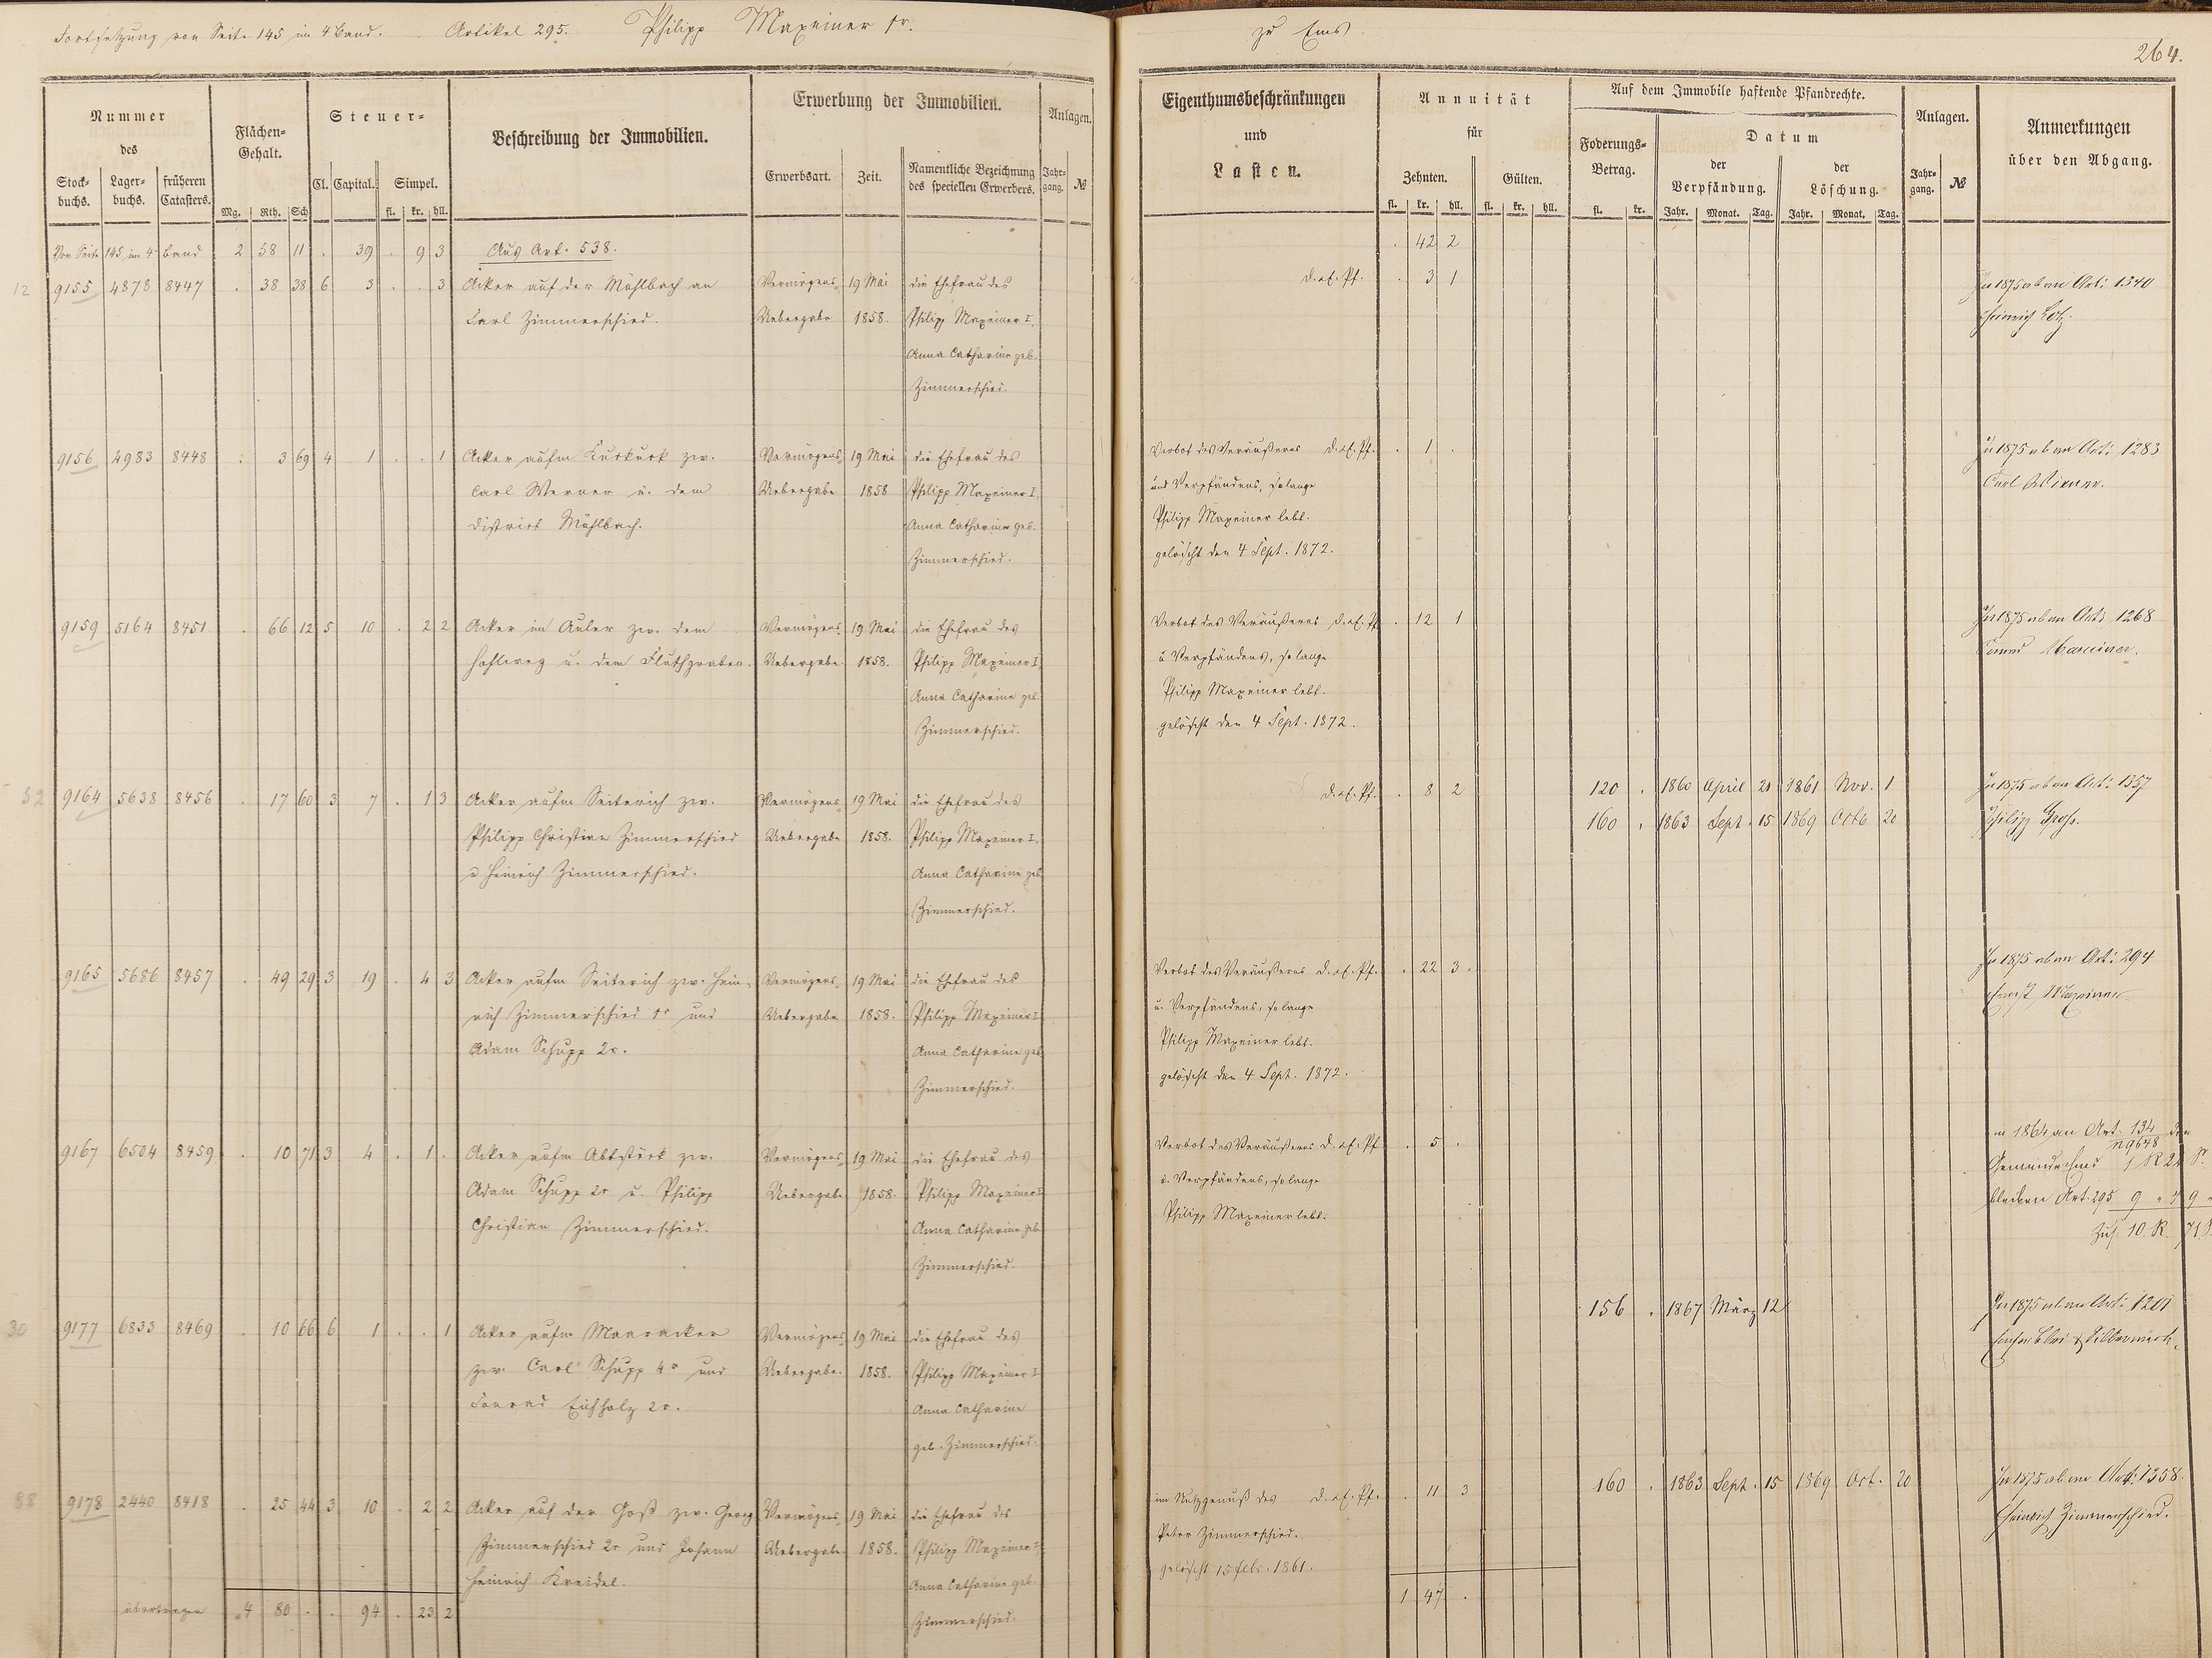 Fortsetzung von Seite 145 im 4 Band. Artikel 295. Philipp Maxeiner 1r. zu Ems.
264.
Nummer des
Stock-buchs. Lager-buchs. früheren Catasters.
Flächen-Gehalt.
Mg. Rth. Sch
Steuer-
Cl. Capital. Simpel.
fl. kr. hll.
Beschreibung der Immobilien.
Erwerbung der Immobilien.
Erwerbsart. Zeit. Namentliche Bezeichnung des speciellen Erwerbers.
Anlagen.
Jahr-gang. №
Eigenthumsbeschränkungen
und
Lasten.
Annuität
für
Zehnten. Gülten.
fl. kr. hll. fl. kr. hll.
Auf dem Immobile haftende Pfandrechte.
Foderungs-Betrag.
fl. kr.
Datum
der Verpfändung. der Löschung.
Jahr. Monat. Tag. Jahr. Monat. Tag.
Anlagen.
Jahr-gang. №
Anmerkungen
über den Abgang.
Von Seite 145 im 4 Band 2 58 11 . 39 . 9 3 Aus Art. 538. . 42 2
12 9155 4878 8447 . 38 38 6 3 . . 3 Acker auf der Mühlbach an Vermögens- 19 Mai die Ehefrau des d. x. Pf. . 3 1 In 1875 ab an Art: 1340
Carl Zimmerschied. Uebergabe 1858. Philipp Maxeiner I, Heinrich Lotz.
Anna Catharine geb.
Zimmerschied.
9156 4983 8448 . 3 69 4 1 . . 1 Acker aufm Kukuck zw. Vermögens- 19 Mai die Ehefrau des Verbot des Veräußerns d. x. Pf. . 1 . In 1875 ab an Art: 1283
Carl Werner u. dem Uebergabe 1858 Philipp Maxeiner I, und Verpfändens, so lange Carl Werner.
District Mühlbach. Anna Catharine geb. Philipp Maxeiner lebt.
Zimmerschied. gelöscht den 4 Sept. 1872.
9159 5164 8451 . 66 12 5 10 . 2 2 Acker im Auler zw. dem Vermögens- 19 Mai die Ehefrau des Verbot des Veräußerns d. x. Pf. . 12 1 In 1875 ab an Art: 1268
Hohlweg u. dem Fluthgraben. Uebergabe. 1858. Philipp Maxeiner I, u Verpfändens, so lange Maxeiner.
Anna Catharine geb. Philipp Maxeiner lebt.
Zimmerschied. gelöscht den 4 Sept. 1872.
52 9164 5638 8456 . 17 60 3 7 . 1 3 Acker aufm Seiterich zw. Vermögens- 19 Mai die Ehefrau des d. x. Pf. . 8 2 120 . 1860 April 21 1861 Nov. 1 In 1875 ab an Art: 1357
Philipp Christian Zimmerschied Uebergabe 1858. Philipp Maxeiner I, 160 . 1863 Sept. 15 1869 Octb 20 Philipp
u Heinrich Zimmerschied. Anna Catharine geb.
Zimmerschied.
9165 5686 8457 . 49 29 3 19 . 4 3 Acker aufm Seiterich zw. Hein- Vermögens- 19 Mai die Ehefrau des Verbot des Veräußerns d. x. Pf. . 22 3 . In 1875 ab an Art: 294
rich Zimmerschied 1r und Uebergabe 1858. Philipp Maxeiner I u. Verpfändens, so lange Ernst Maxeiner
Adam Schupp 2r. Anna Catharine geb. Philipp Maxeiner lebt.
Zimmerschied. gelöscht den 4 Sept. 1872.
9167 6504 8459 . 10 71 3 4 . 1 . Acker aufm Abtstück zw. Vermögens- 19 Mai die Ehefrau des Verbot des Veräußerns d. x. Pf. . 5 . in 1864 an Art. 134 n 9648
Adam Schupp 2r u. Philipp Uebergabe 1858. Philipp Maxeiner I u. Verpfändens, so lange Gemeinde Ems 1 R 2
Christian Zimmerschied. Anna Catharine geb. Philipp Maxeiner lebt. bleiben Art. 295 9
Zimmerschied. Zus. 10. R. 71.
30 9177 6833 8469 . 10 66 6 1 . . 1 Acker aufm Maaracker Vermögens- 19 Mai die Ehefrau des 156 . 1867 März 12 In 1875 ab an Art: 1201
zw. Carl Schupp 4r und Uebergabe. 1858. Philipp Maxeiner I Emser Blei & Silberwerk.
Conrad Eichholz 2r. Anna Catharine
geb. Zimmerschied.
88 9178 2440 8418 . 25 44 3 10 . 2 2 Acker auf der Goß zw. Georg Vermögens- 19 Mai die Ehefrau des im Nutzgenuß des d. x. Pf. . 11 3 160 . 1863 Sept. 15 1869 Oct. 20 In 1875 ab an Art: 1358.
Zimmerschied 2r und Johann Uebergabe 1858. Philipp Maxeiner I, Peter Zimmerschied. Heinrich Zimmerschied.
Heinrich Kreidel. Anna Catharine geb. gelöscht 15 Febr. 1861.
übertragen 4 80 . . 94 . 23 2 Zimmerschied. 1 47 .